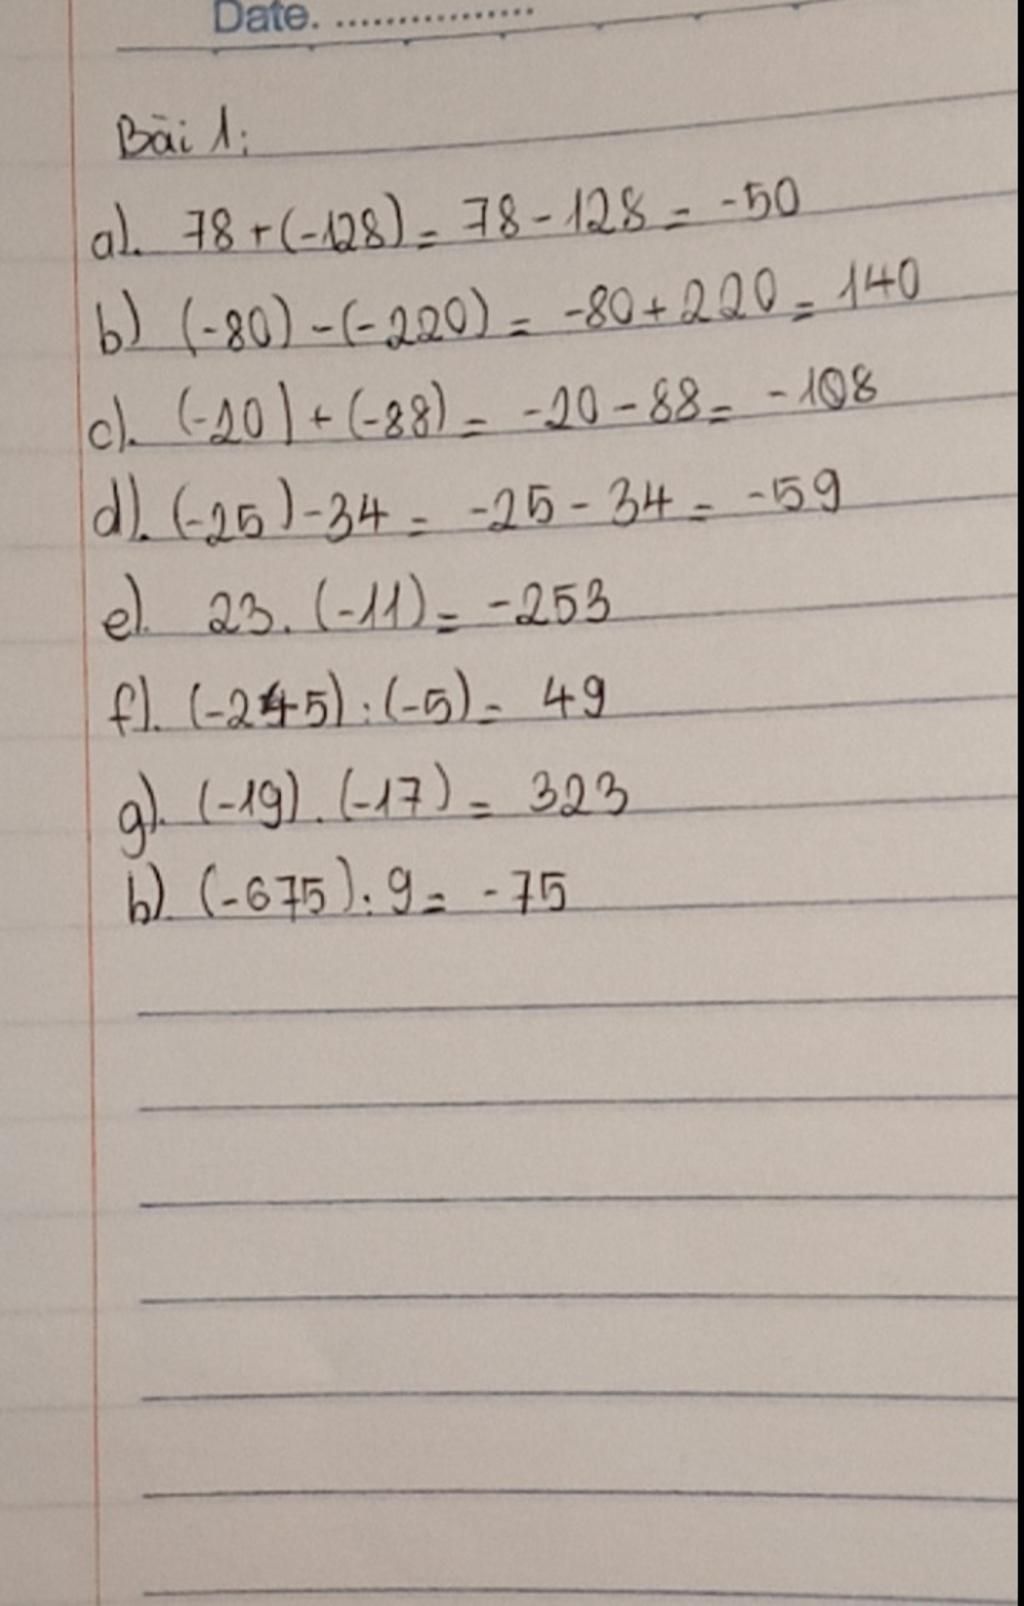 Date. ................
Bài 1:
a). 78+(-128) = 78 - 128 = -50
b) (-80) - (-220) = -80 + 220 = 140
c). (-20) + (-88) = -20 - 88 = -108
d). (-25) - 34 = -25 - 34 = -59
e). 23. (-11) = -253
f). (-245) : (-5) = 49
g). (-19) . (-17) = 323
h). (-675) : 9 = -75